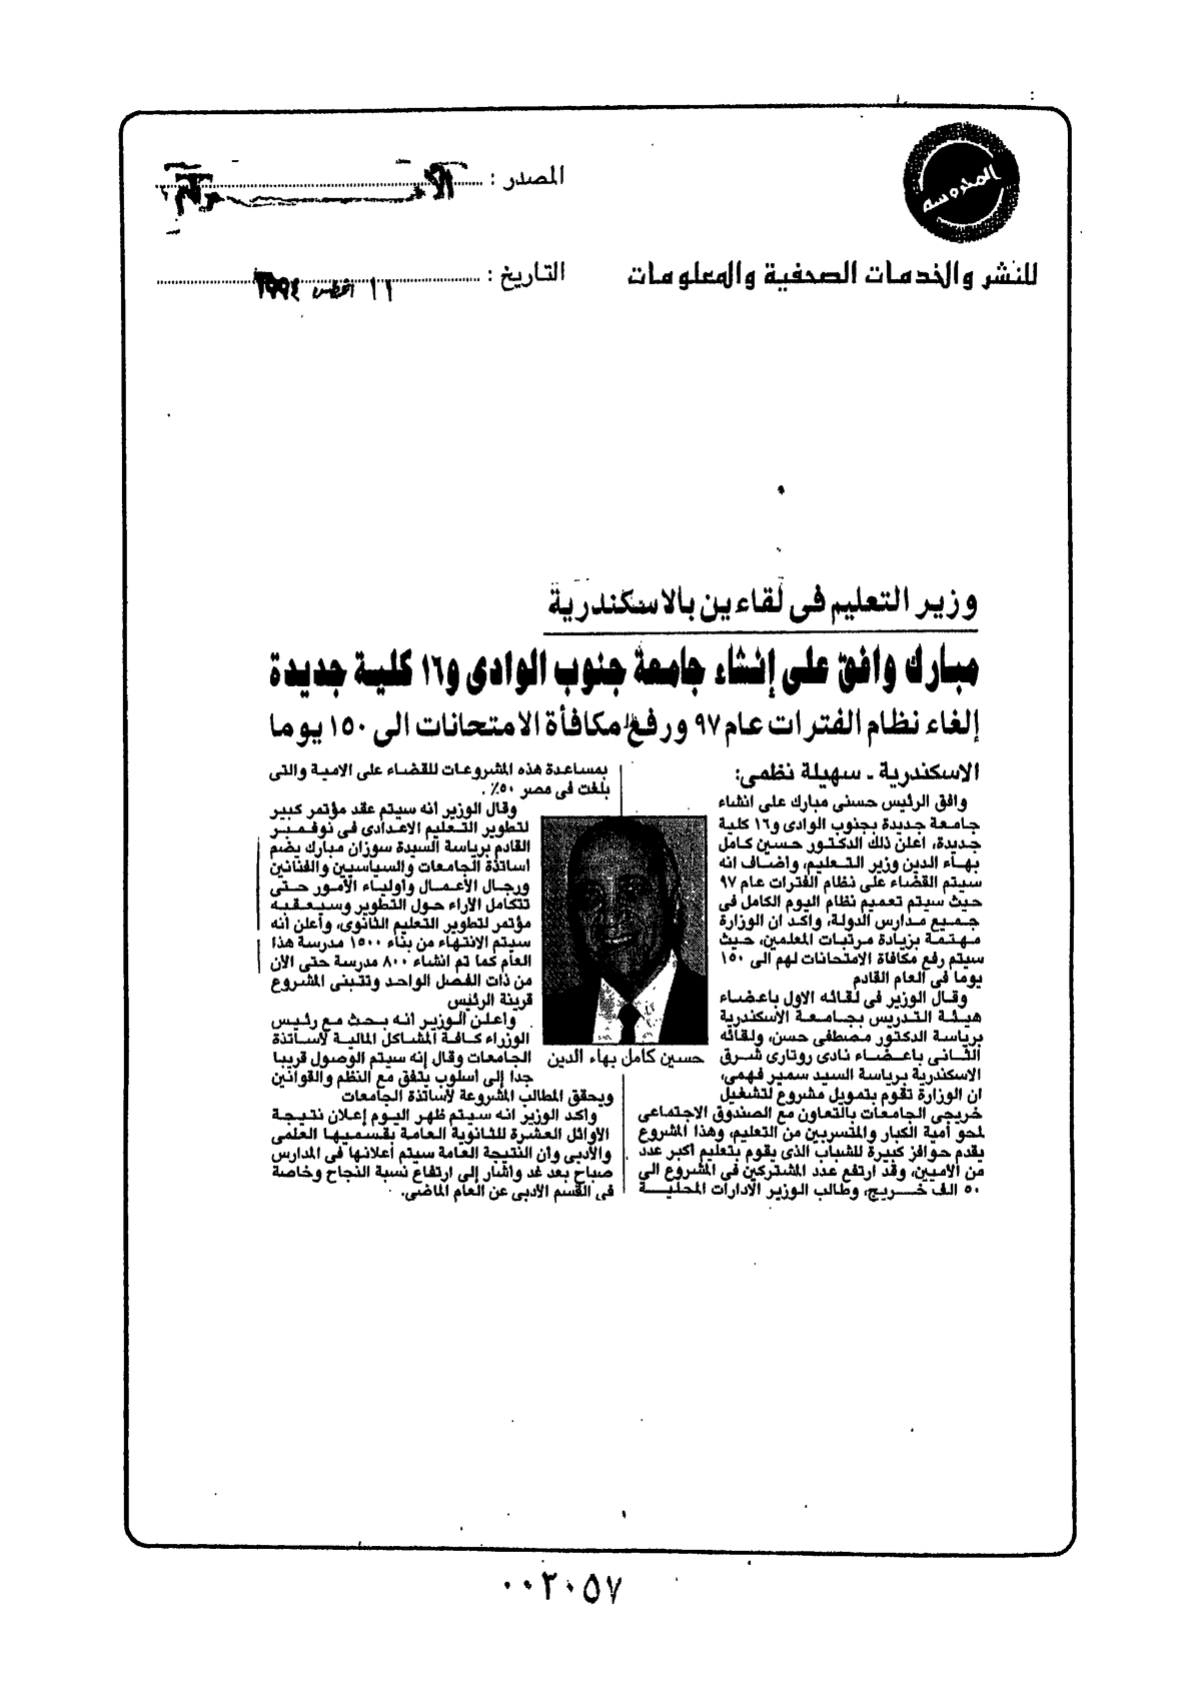 المحروسة
للنشر والخدمات الصحفية والمعلومات
المصدر :
التاريخ : ١١ أغسطس ١٩٩٤
وزير التعليم فى لقاءين بالاسكندرية
مبارك وافق على إنشاء جامعة جنوب الوادى و١٦ كلية جديدة
إلغاء نظام الفترات عام ٩٧ ورفع مكافأة الامتحانات الى ١٥٠ يوما
الاسكندرية ـ سهيلة نظمى:
وافق الرئيس حسنى مبارك على انشاء
جامعة جديدة بجنوب الوادى و١٦ كلية
جديدة، اعلن ذلك الدكتور حسين كامل
بهاء الدين وزير التعليم، واضاف انه
سيتم القضاء على نظام الفترات عام ٩٧
حيث سيتم تعميم نظام اليوم الكامل فى
جميع مدارس الدولة، واكد ان الوزارة
مهتمة بزيادة مرتبات المعلمين، حيث
سيتم رفع مكافاة الامتحانات لهم الى ١٥٠
يوما فى العام القادم
وقال الوزير فى لقائه الاول باعضاء
هيئة التدريس بجامعة الاسكندرية
برياسة الدكتور مصطفى حسن، ولقائه
الثانى باعضاء نادى روتارى شرق
الاسكندرية برياسة السيد سمير فهمى،
ان الوزارة تقوم بتمويل مشروع لتشغيل
خريجى الجامعات بالتعاون مع الصندوق الاجتماعى
لمحو أمية الكبار والمتسربين من التعليم، وهذا المشروع
يقدم حوافز كبيرة للشباب الذى يقوم بتعليم اكبر عدد
من الاميين، وقد ارتفع عدد المشتركين فى المشروع الى
٥٠ الف خريج، وطالب الوزير الادارات المحلية
بمساعدة هذه المشروعات للقضاء على الامية والتى
بلغت فى مصر ٥٠٪ .
وقال الوزير انه سيتم عقد مؤتمر كبير
لتطوير التعليم الاعدادى فى نوفمبر
القادم برياسة السيدة سوزان مبارك يضم
اساتذة الجامعات والسياسيين والفنانين
ورجال الأعمال وأولياء الأمور حتى
تتكامل الأراء حول التطوير وسيعقبه
مؤتمر لتطوير التعليم الثانوى، وأعلن أنه
سيتم الانتهاء من بناء ١٥٠٠ مدرسة هذا
العام كما تم انشاء ٨٠٠ مدرسة حتى الآن
من ذات الفصل الواحد وتتبنى المشروع
قرينة الرئيس
وأعلن الوزير انه بحث مع رئيس
الوزراء كافة المشاكل المالية لأساتذة
الجامعات وقال إنه سيتم الوصول قريبا
جدا إلى اسلوب يتفق مع النظم والقوانين
ويحقق المطالب المشروعة لأساتذة الجامعات
واكد الوزير انه سيتم ظهر اليوم إعلان نتيجة
الأوائل العشرة للثانوية العامة بقسميها العلمى
والأدبى وأن النتيجة العامة سيتم أعلانها فى المدارس
صباح بعد غد وأشار إلى ارتفاع نسبة النجاح وخاصة
فى القسم الأدبى عن العام الماضى.
حسين كامل بهاء الدين
٠٠٣٠٥٧